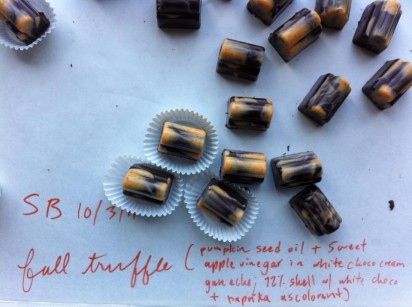 SB 10/3/11
fall truffle (pumpkin seed oil + sweet
apple vinegar in white choco cream
ganache; 72% shell w/ white choco
+ paprika as colorant)